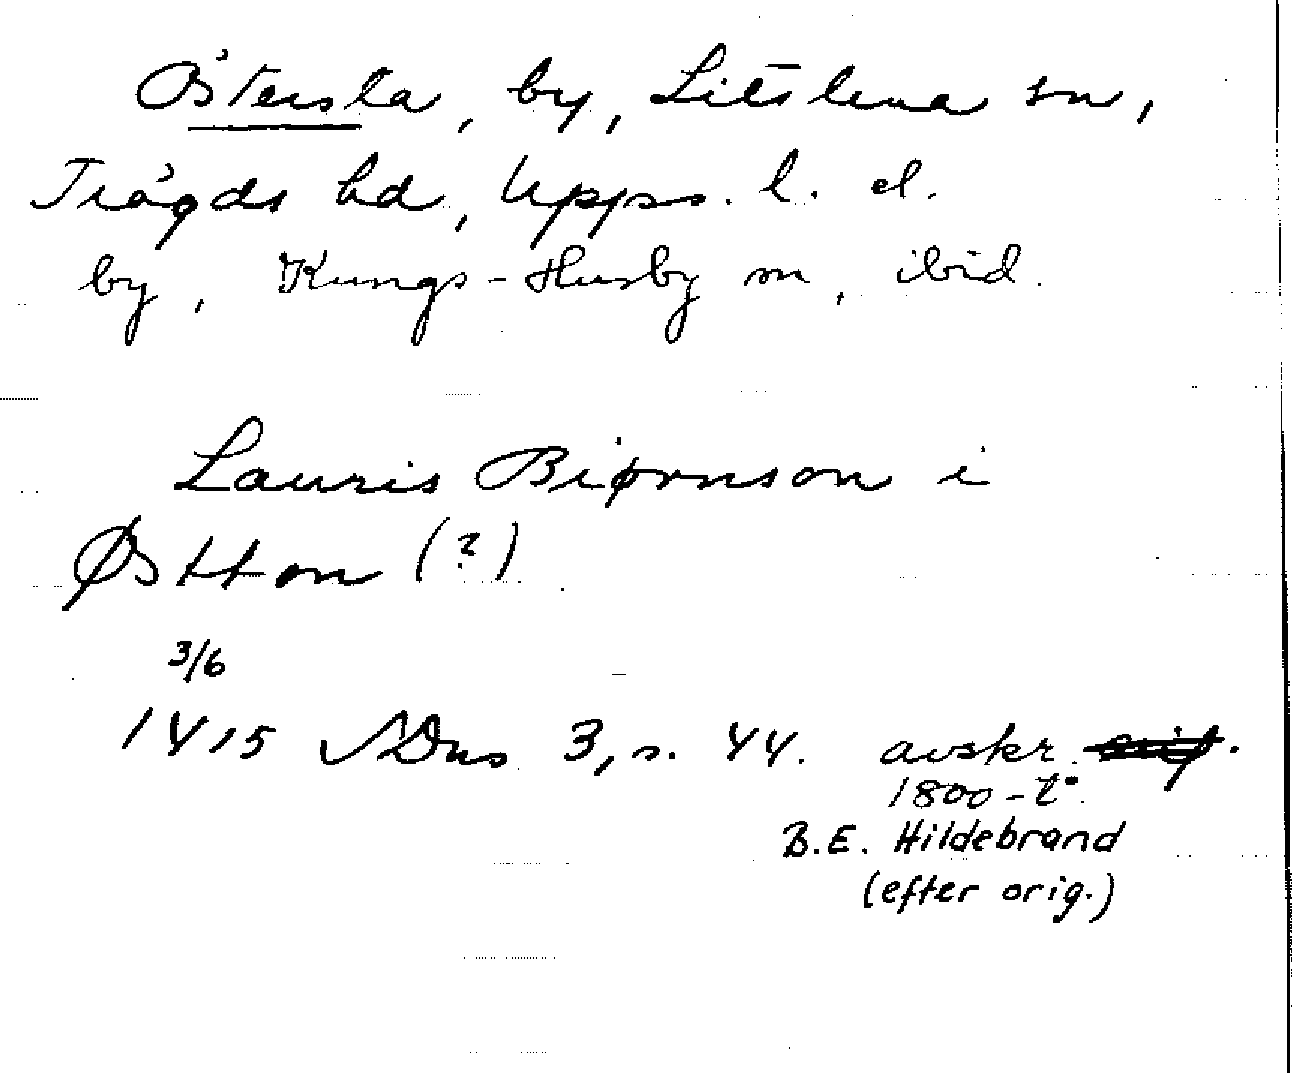 Östersta, by, Litslena sn,
Trögds hd, Upps. l. el.
by, Kungs-Husby sn, ibid.
Lauris Biørnson i
Østton (?)
3/6
1415 SDns 3, s. 44. avskr. orig.
1800-t.
B.E. Hildebrand
(efter orig.)